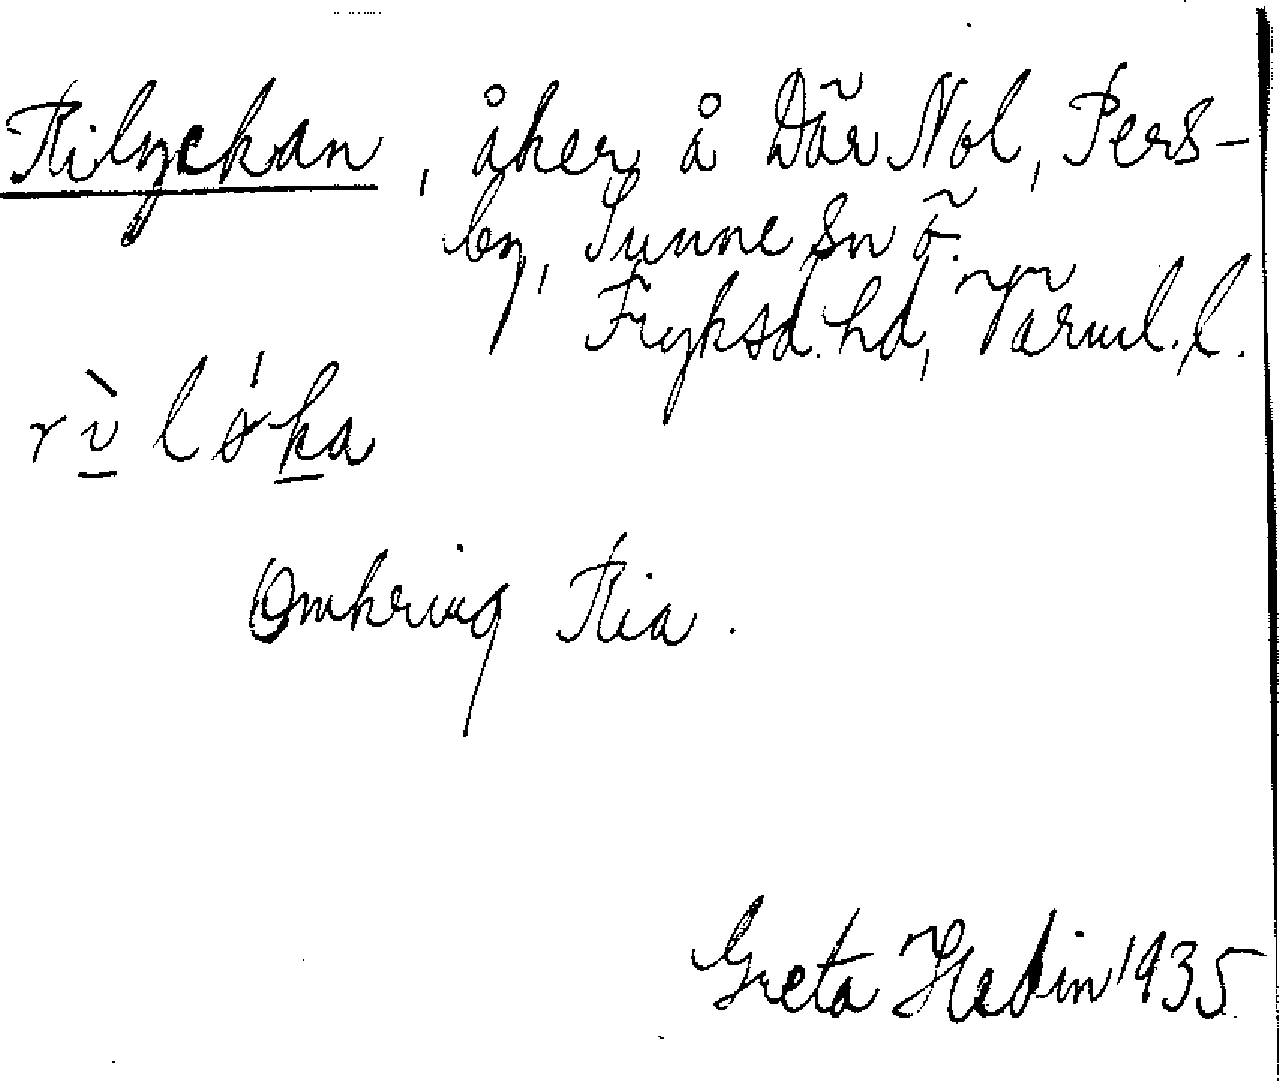 Rilyckan, åker å Där Nol, Pers-
by, Sunne sn ö.
Fryksd. hd, Värml. l.
rì lǿka
Omkring Ria.
Greta Hedin 1935